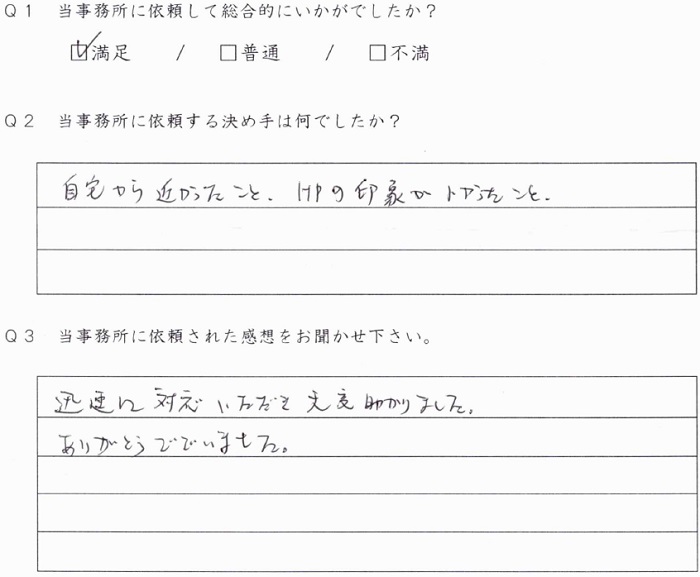 Q1 当事務所に依頼して総合的にいかがでしたか?
☑満足 / □普通 / □不満
Q2 当事務所に依頼する決め手は何でしたか?
自宅から近かったこと。HPの印象が よかったこと。
Q3 当事務所に依頼された感想をお聞かせ下さい。
迅速に対応いただき大変助かりました。
ありがとうございました。